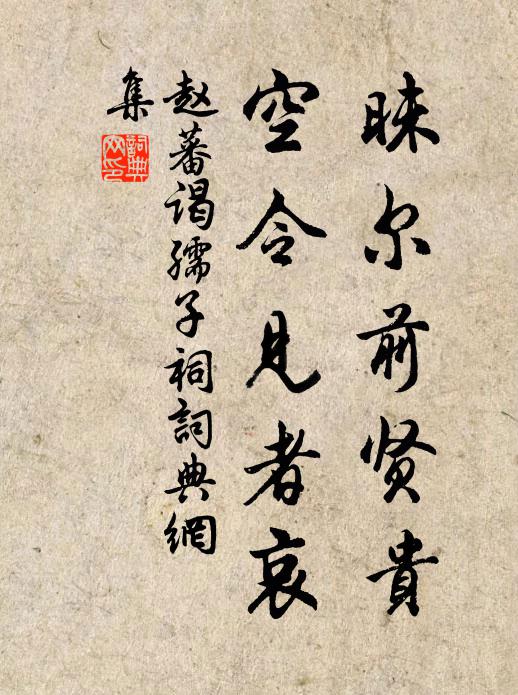 睐尔前贤贵
空令见者哀
赵蕃谒孺子祠詞典網
集
詞典網印